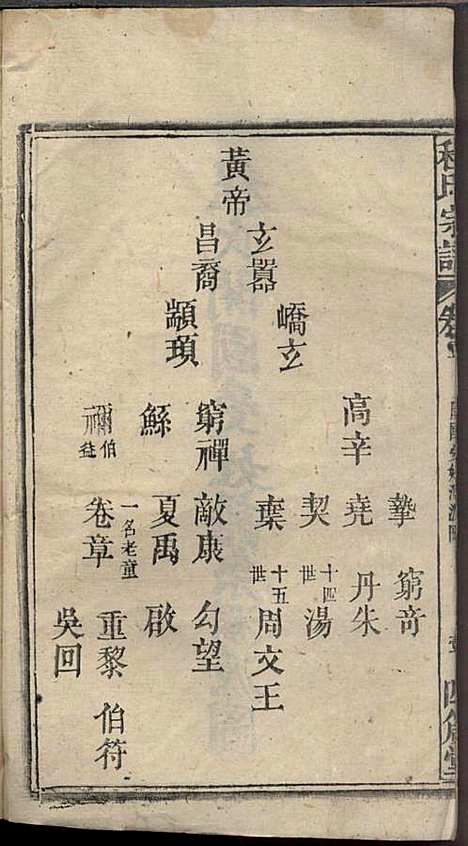 程氏宗譜
卷
黃帝
玄囂
昌裔
嶠玄
顓頊
高辛
窮禪
鯀
禰 伯益
摯
堯
契
棄
敵康
夏禹
一名老童
卷章
窮奇
丹朱
十四世
湯
十五世
周文王
勾望
啟
重黎
吳回
伯符